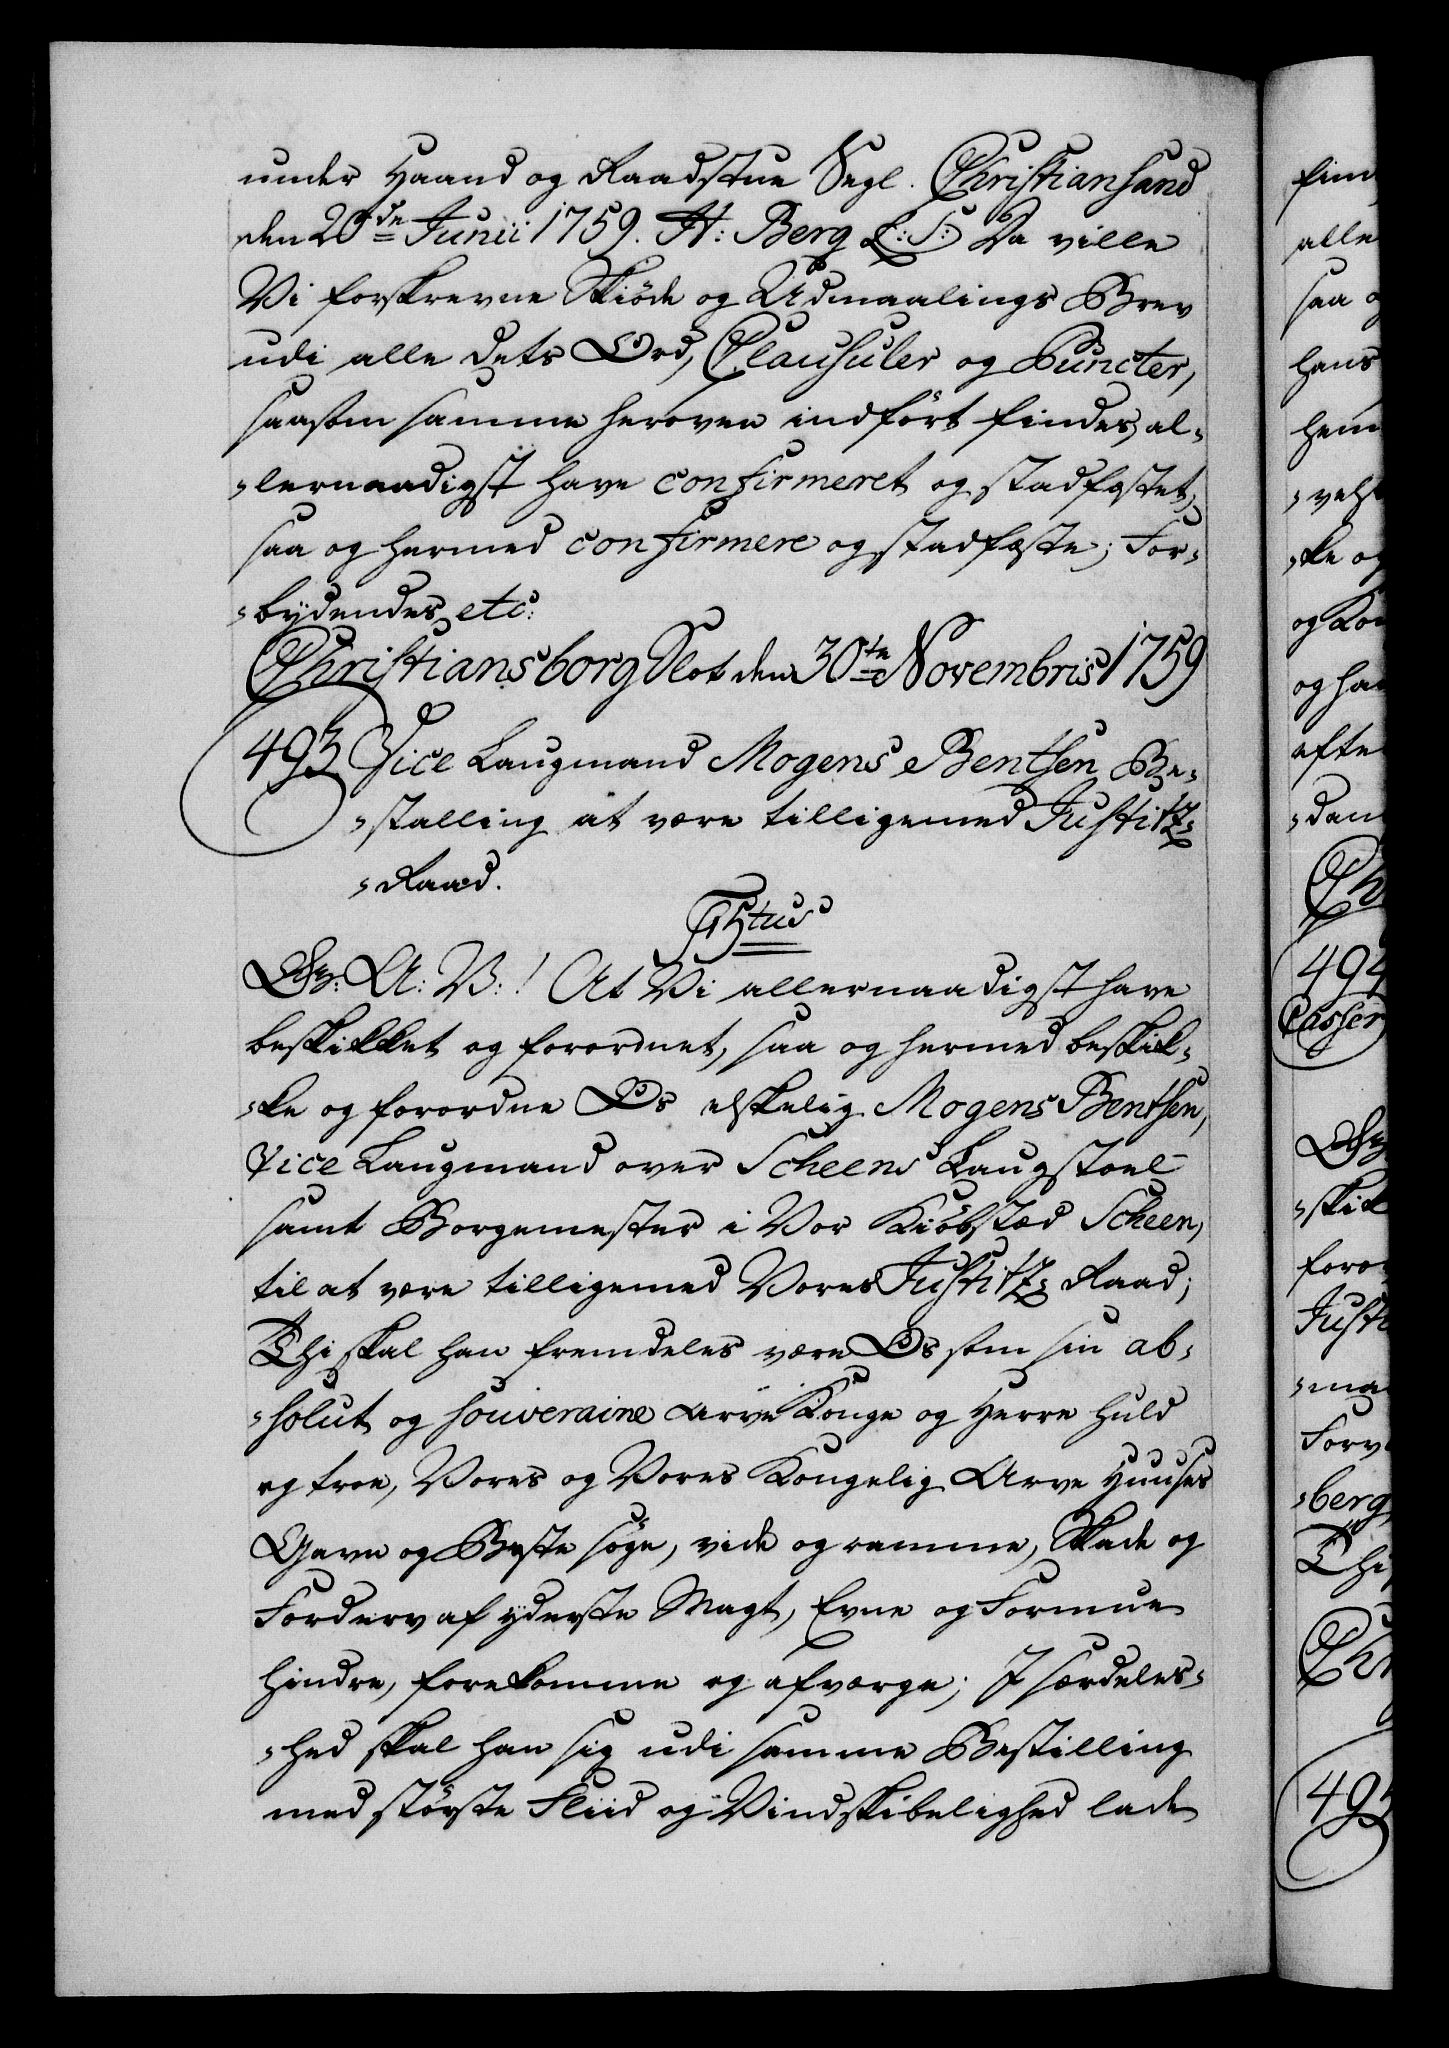 under Haand og Raadstue Segl. Christiansand
den 20de Junii 1759. H: Berg L:S: Da ville
Vi forskrevne Skiöde og Udmaalings Brev
udi alle dets Ord, Clausuler og Puncter,
saasom samme heroven indfört findes, al-
-lernaadigst have confirmeret og stadfæstet,
saa og hermed confirmere og stadfæste; For-
-bydendes etc:
Christiansborg Slot den 30te Novembris 1759
493 Vice Laugmand Mogens Bentsen Be-
-stalling at være tilligemed Justitz-
-Raad.
F 5tus
G: A: V:! At Vi allernaadigst have
beskikket og forordnet, saa og hermed beskik-
-ke og forordne Os elskelig Mogens Bentsen,
Vice Laugmand over Scheens Laugstoel
samt Borgemester i Vor Kiöbstæd Scheen,
til at være tilligemed Vores Justitz- Raad;
Thi skal han fremdeles være Os som sin ab-
-solut og souveraine Arve Konge og Herre huld
og troe, Vores og Vores Kongelig Arve Huuses
Gavn og Beste söge, vide og ramme, Skade og
Forderv af yderste Magt, Evne og Formue
hindre, forekomme og afværge; J særdeles-
-hed skal han sig udi samme Bestilling
med störste Fliid og Vindskibelighed lade
alle
saa og
hans
-ke og
og
efte
494
Casser
skik
Just
-berg
Thi